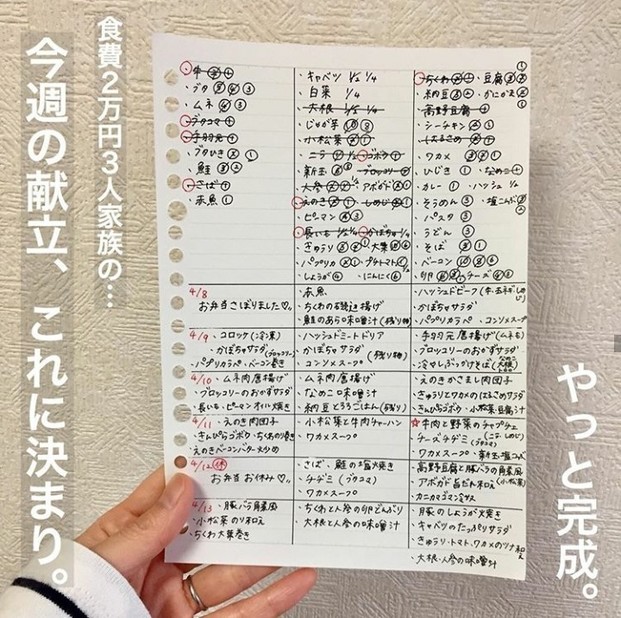 食費2万円3人家族の…
今週の献立、これに決まり。
やっと完成。
・牛
・ブタ 3
・ムネ 3
・ブタコマ
・手羽元
・ブタひき
・鮭
・さば
・赤魚 1
・キャベツ 1/2 1/4
・白菜 1/4
・大根
・じゃが芋
・小松菜
・ニラ ・ゴボウ
・新玉 ・ブロッコリー
・大葉 ・アボガド
・えのき ・しめじ
・ピーマン
・長いも ・かぼちゃ
・きゅうり ・大葉
・パプリカ ・プチトマト
・しょうが ・にんにく
・ちくわ ・豆腐
・納豆 ・かにかま
・高野豆腐
・シーチキン
・はるさめ
・ワカメ
・ひじき 1 ・なめこ
・カレー 1 ・ハッシュ 1/2
・そうめん 3 ・塩こんぶ
・パスタ 3
・うどん 3
・そば
・ベーコン
・卵 ・チーズ
4/8
お弁当さぼりました♡
・赤魚
・ちくわの磯辺揚げ
・鮭のあら味噌汁(残り物)
・ハッシュドビーフ
・かぼちゃサラダ
・パプリカラペ ・コンソメスープ
4/9 ・コロッケ(冷凍)
・かぼちゃサラダ
・パプリカラペ ・ベーコン巻き
・ハッシュドミートドリア
・かぼちゃサラダ (残り物)
・コンソメスープ
・手羽元唐揚げ(ムネも)
・ブロッコリーのおかずサラダ
・冷やしぶっかけそば
4/10 ・ムネ肉唐揚げ
・ブロッコリーのおかずサラダ
・長いも・ピーマンオイル焼き
・ムネ肉唐揚げ
・なめこ味噌汁
・納豆とろろごはん(残り)
・えのきかさまし肉団子
・きゅうりとワカメのはるさめサラダ
・きんぴらゴボウ ・小松菜豆腐汁
4/11 ・えのき肉団子
・きんぴらゴボウ ・ちくわの磯辺
・えのきベーコンバター炒め
・小松菜と牛肉チャーハン
・ワカメスープ
☆牛肉と野菜のチャプチェ
・チーズチヂミ(ニラ・しめじ)
・ワカメスープ
4/12 休
お弁当お休み♡
・さば、鮭の塩焼き
・チヂミ(ブタコマ)
・ワカメスープ
・高野豆腐と豚バラの角煮風
・アボガド旨だれ和え
・カニカマゴマミサダ
4/13 ・豚バラ角煮風
・小松菜のツナ和え
・ちくわ大葉巻き
・ちくわと人参の卵どんぶり
・大根と人参の味噌汁
・豚のしょうが焼き
・キャベツのたっぷりサラダ
・きゅうり・トマト、ワカメのツナ和え
・大根・人参の味噌汁